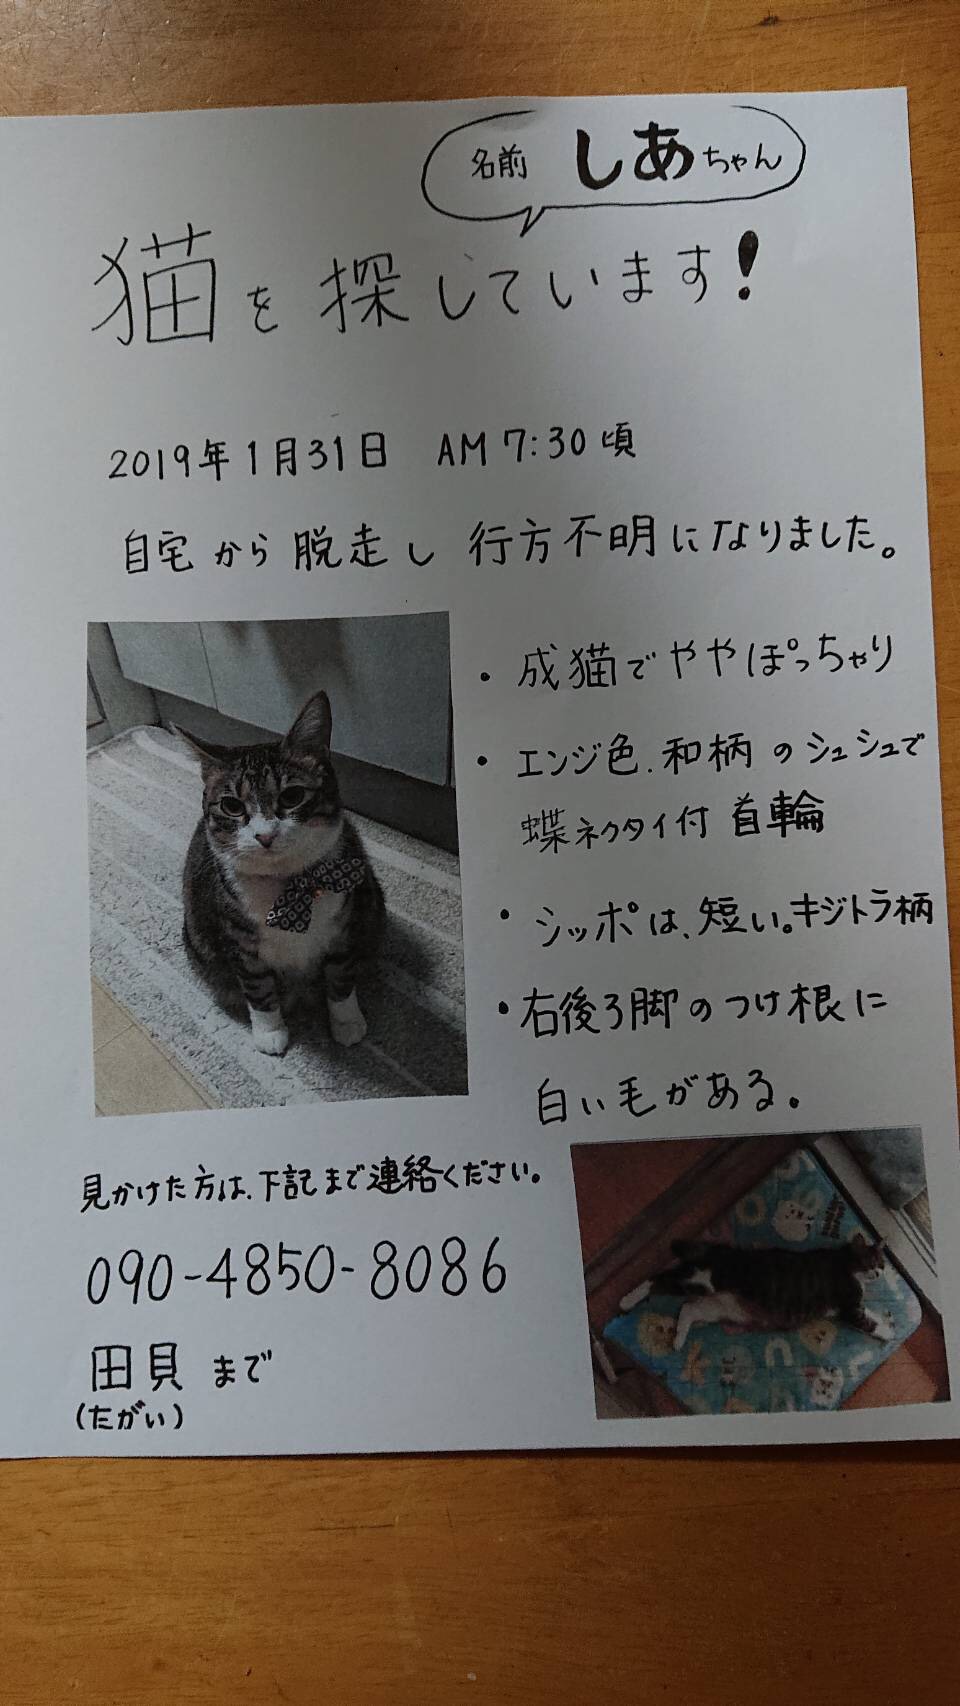 名前 しあちゃん
猫を探しています!
2019年1月31日 AM7:30頃
自宅から脱走し 行方不明になりました。
・成猫でややぽっちゃり
・エンジ色.和柄のシュシュで
蝶ネクタイ付首輪
・シッポは、短い。キジトラ柄
・右後ろ脚のつけ根に
白い毛がある。
見かけた方は、下記まで連絡ください。
090-4850-8086
田貝まで
(たがい)